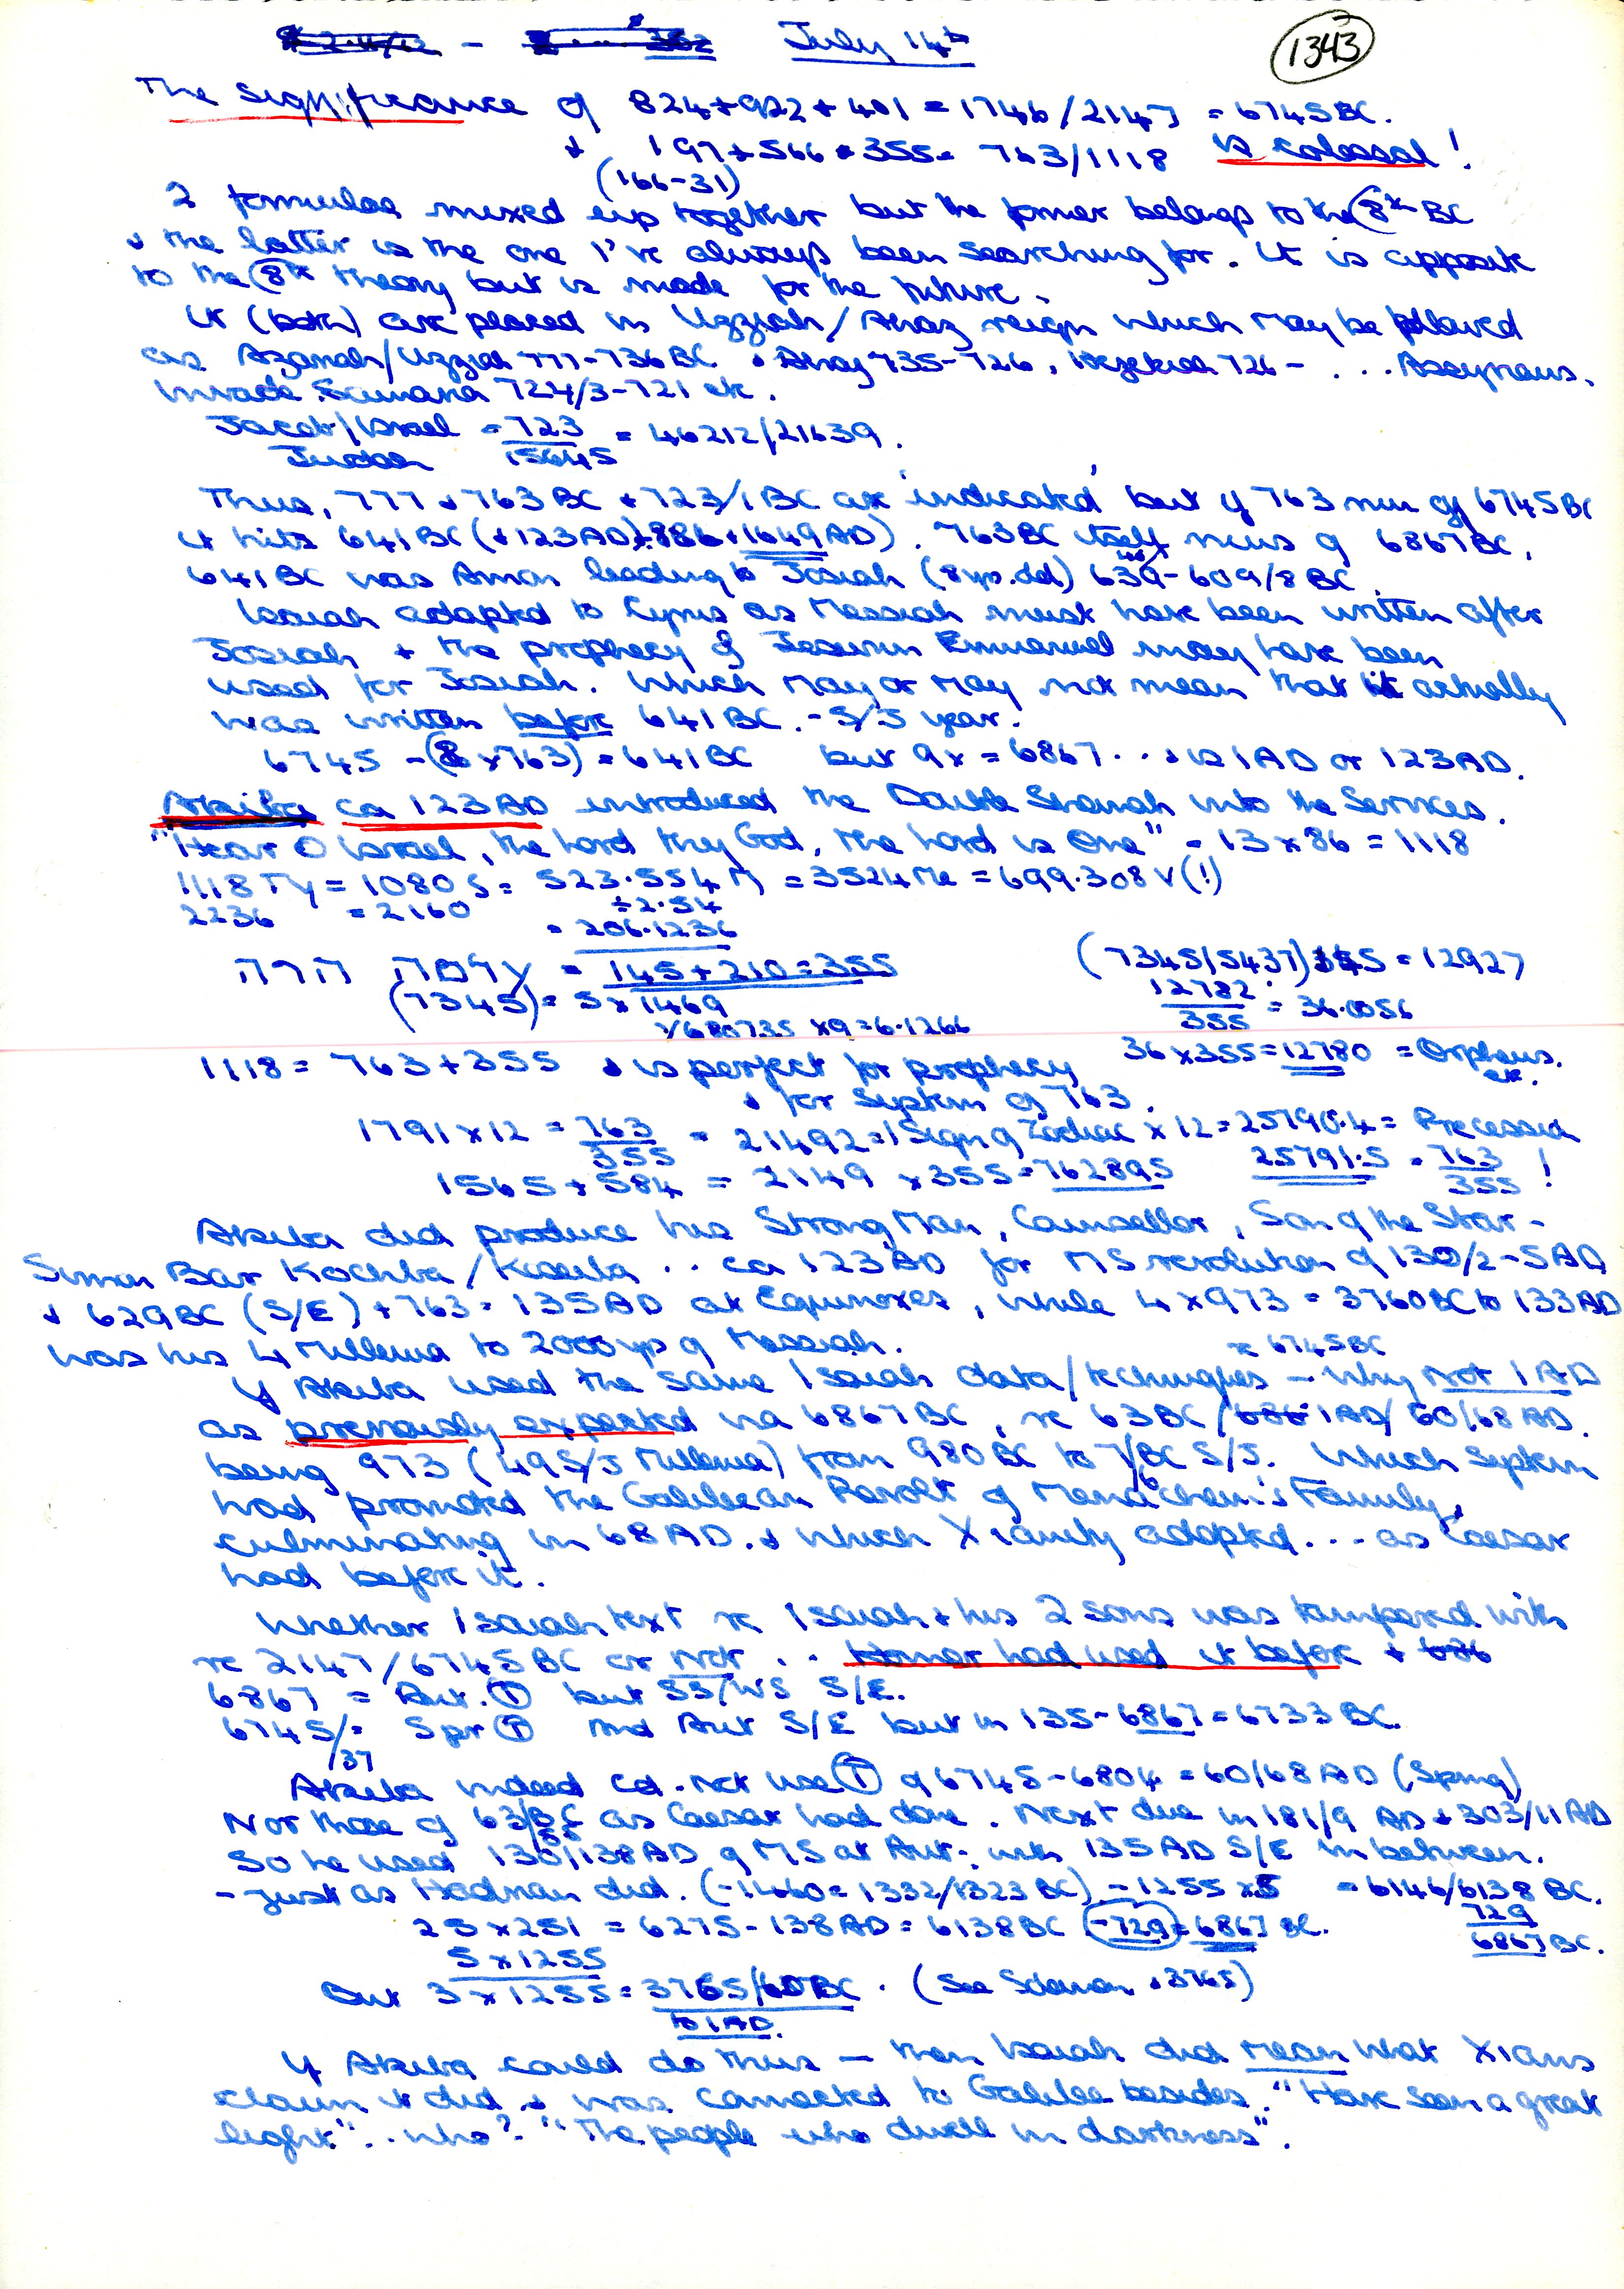 July 14th
1343
The Significance of 824+922+401 = 1746/2147 = 6745BC.
+ 197+566+355= 763/1118 is colossal!
(166-31)
2 formulae mixed up together but the former belongs to the 8th BC
+ the latter is the one I've always been searching for. It is apposite
to the 8th theory but is made for the future.
It (both) are placed in Uzziah/Ahaz reign which may be
as Azariah/Uzziah 777-736BC + Ahaz 735-726, Hezekiah 726- ... Assyrians.
invade Samaria 724/3-721 etc.
Jacob/Israel = 723 = 46212/21639.
Judah 15645
Thus, 777 + 763BC + 723/1BC are 'indicated' but if 763 run of 6745BC
it hits 641BC (+123AD)+886+1649AD). 763BC itself runs of 6867BC.
641BC was Amon leading to Josiah (8yo. old) 639-609/8BC.
Isaiah adapted to Cyrus as Messiah must have been written after
Josiah + the prophecy of Emmanuel may have been
used for Josiah. Which may or may not mean that it actually
was written before 641BC. - S/J year.
6745 - (8x763) = 641BC but 9x = 6867... + is 1AD or 123AD.
Akiba ca 123AD introduced the Double Shemah into the Services.
"Hear O Israel, the Lord thy God, the Lord is One" - 13x86 = 1118
1118 Ty = 1080 S = 523.554 M = 3524Me = 699.308 V(!)
2236 = 2160 ÷2.54
= 206.1236
= 145+210=355
(7345|5437) = 12927
(7345) = 5x1469
12782 = 36.0056
355
x9=6.1266
1118 = 763+355 + is perfect for prophecy
36x355=12780 = Orpheus.
etc.
+ for System of 763.
1791x12 = 763 = 21492=1 Sign of Zodiac x12=25790.4 = Precession
355
1565+584 = 2149 x355=762895 25791.5 = 763 !
355
Akiba did produce his Strong Man, Counsellor, Son of the Star -
Simon Bar Kochba/Koseba .. ca 123AD for MS revolution of 130/2-5AD
+ 629BC (S/E) +763= 135AD at Equinoxes, while 4x973 = 3760BC to 133AD
was his 4 Millenia to 2000yrs of Messiah.
re 6745BC
If Akiba used the same Isaiah data/techniques - why not 1AD
as previously expected via 6867BC, re 63BC/ 1AD/ 60/68 AD.
being 973 (49S/J Millenia) from 980BC to 7/6BC S/J. Which system
had promoted the Galilean Revolt of Menachem's Family,
culminating in 68AD. + which Xianity adopted... as Caesar
had before it.
Whether Isaiah text re Isaiah + his 2 sons was tampered with
re 2147/6745BC or Not .. Homer had used it before +
6867 = Aut. T but SS/WS S/E.
6745/= Spr T and Aut S/E but in 135-6867=6733BC.
/37
Akiba indeed cd. not use T of 6745-6804 = 60/68AD (Spring)
Nor those of 63/BC as Caesar had done. Next due in 181/9 AD + 303/11AD
55
So he used 130/138AD of MS at Aut. with 135AD S/E in between.
- just as Hadrian did. (-1460=1332/1323BC) - 1255 x5 = 6146/6138BC.
25x251 = 6275-138AD= 6138BC -729=6867BC.
729
6867BC.
5x1255
But 3x1255= 3765/60BC. (See Solomon +3765)
to 1AD.
If Akiba could do thus - then Isaiah did mean what Xians
claim it did + was connected to Galilee besides. "Have seen a great
light"... who? "The people who dwell in darkness".